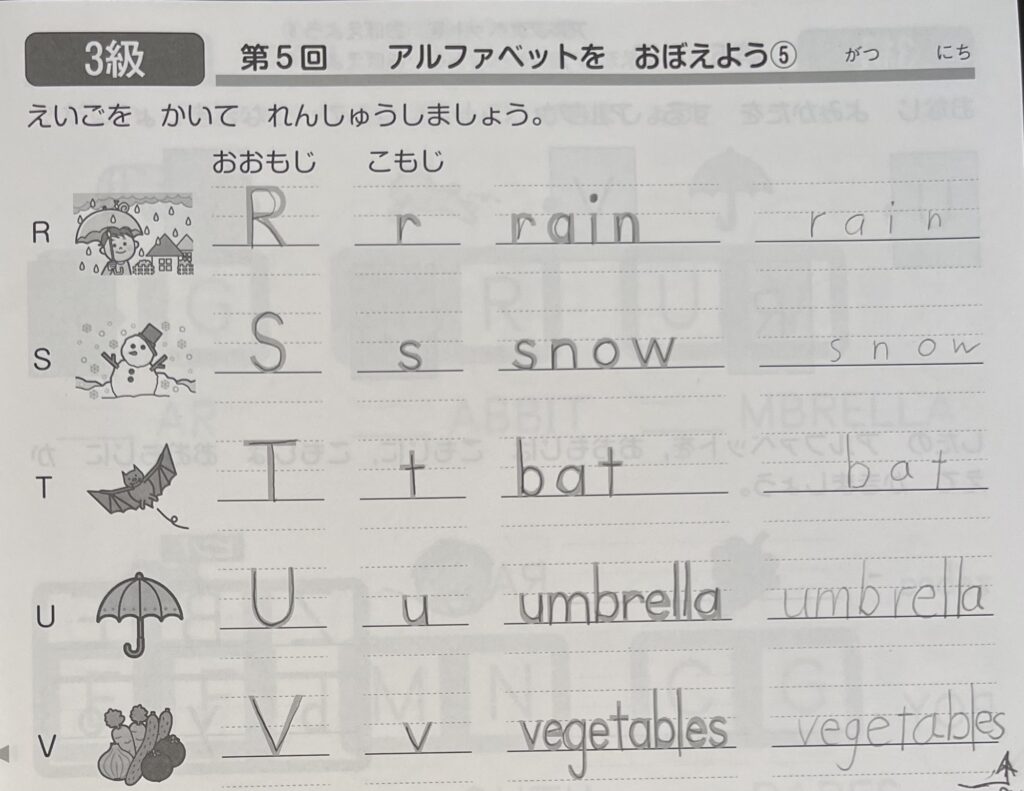 3級 第5回 アルファベットを おぼえよう⑤ がつ にち
えいごを かいて れんしゅうしましょう。
おおもじ こもじ
R R r rain rain
S S s snow snow
T T t bat bat
U U u umbrella umbrella
V V v vegetables vegetables